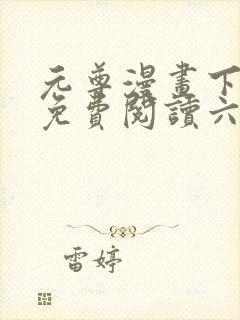 元尊漫畫下
免費閱讀六
雷婷